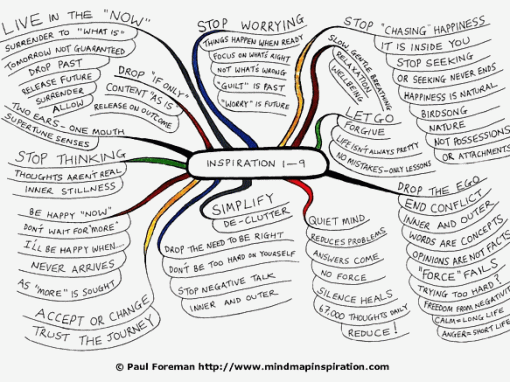 LIVE IN THE "NOW"
SURRENDER TO "WHAT IS"
TOMORROW NOT GUARANTEED
DROP PAST
RELEASE FUTURE
SURRENDER
ALLOW
TWO EARS - ONE MOUTH
SUPERTUNE SENSES
DROP "IF ONLY"
CONTENT "AS IS"
RELEASE ON OUTCOME
STOP WORRYING
THINGS HAPPEN WHEN READY
FOCUS ON WHAT'S RIGHT
NOT WHAT'S WRONG
"GUILT" IS PAST
"WORRY" IS FUTURE
SLOW GENTLE BREATHING
RELAXATION
WELLBEING
STOP "CHASING" HAPPINESS
IT IS INSIDE YOU
STOP SEEKING
OR SEEKING NEVER ENDS
HAPPINESS IS NATURAL
BIRDSONG
NATURE
NOT POSSESSIONS
OR ATTACHMENTS
LET GO
FORGIVE
LIFE ISN'T ALWAYS PRETTY
NO MISTAKES - ONLY LESSONS
INSPIRATION 1-9
STOP THINKING
THOUGHTS AREN'T REAL
INNER STILLNESS
BE HAPPY "NOW"
DON'T WAIT FOR "MORE"
I'LL BE HAPPY WHEN...
NEVER ARRIVES
AS "MORE" IS SOUGHT
ACCEPT OR CHANGE
TRUST THE JOURNEY
SIMPLIFY
DE-CLUTTER
DROP THE NEED TO BE RIGHT
DON'T BE TOO HARD ON YOURSELF
STOP NEGATIVE TALK
INNER AND OUTER
QUIET MIND
REDUCES PROBLEMS
ANSWERS COME
NO FORCE
SILENCE HEALS
67,000 THOUGHTS DAILY
REDUCE!
DROP THE EGO
END CONFLICT
INNER AND OUTER
WORDS ARE CONCEPTS
OPINIONS ARE NOT FACTS
"FORCE" FAILS
TRYING TOO HARD?
FREEDOM FROM NEGATIVITY
CALM = LONG LIFE
ANGER = SHORT LIFE
© Paul Foreman http://www.mindmapinspiration.com